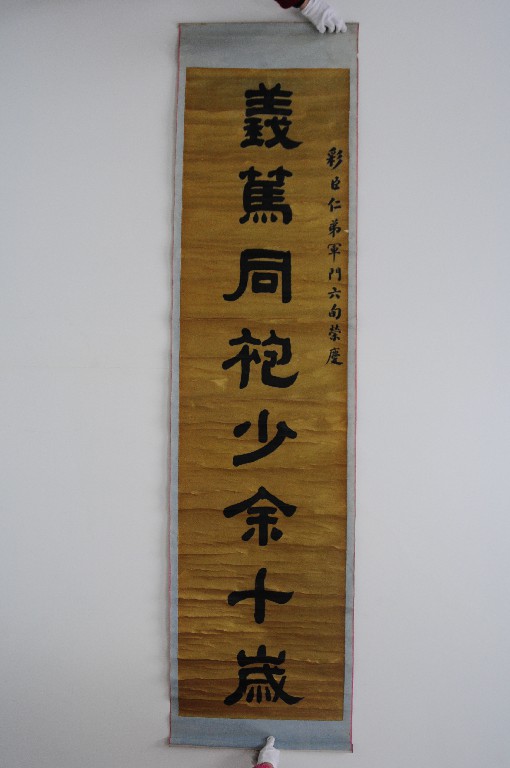 彩臣仁弟軍門六旬榮慶
義篤同袍少余十歲